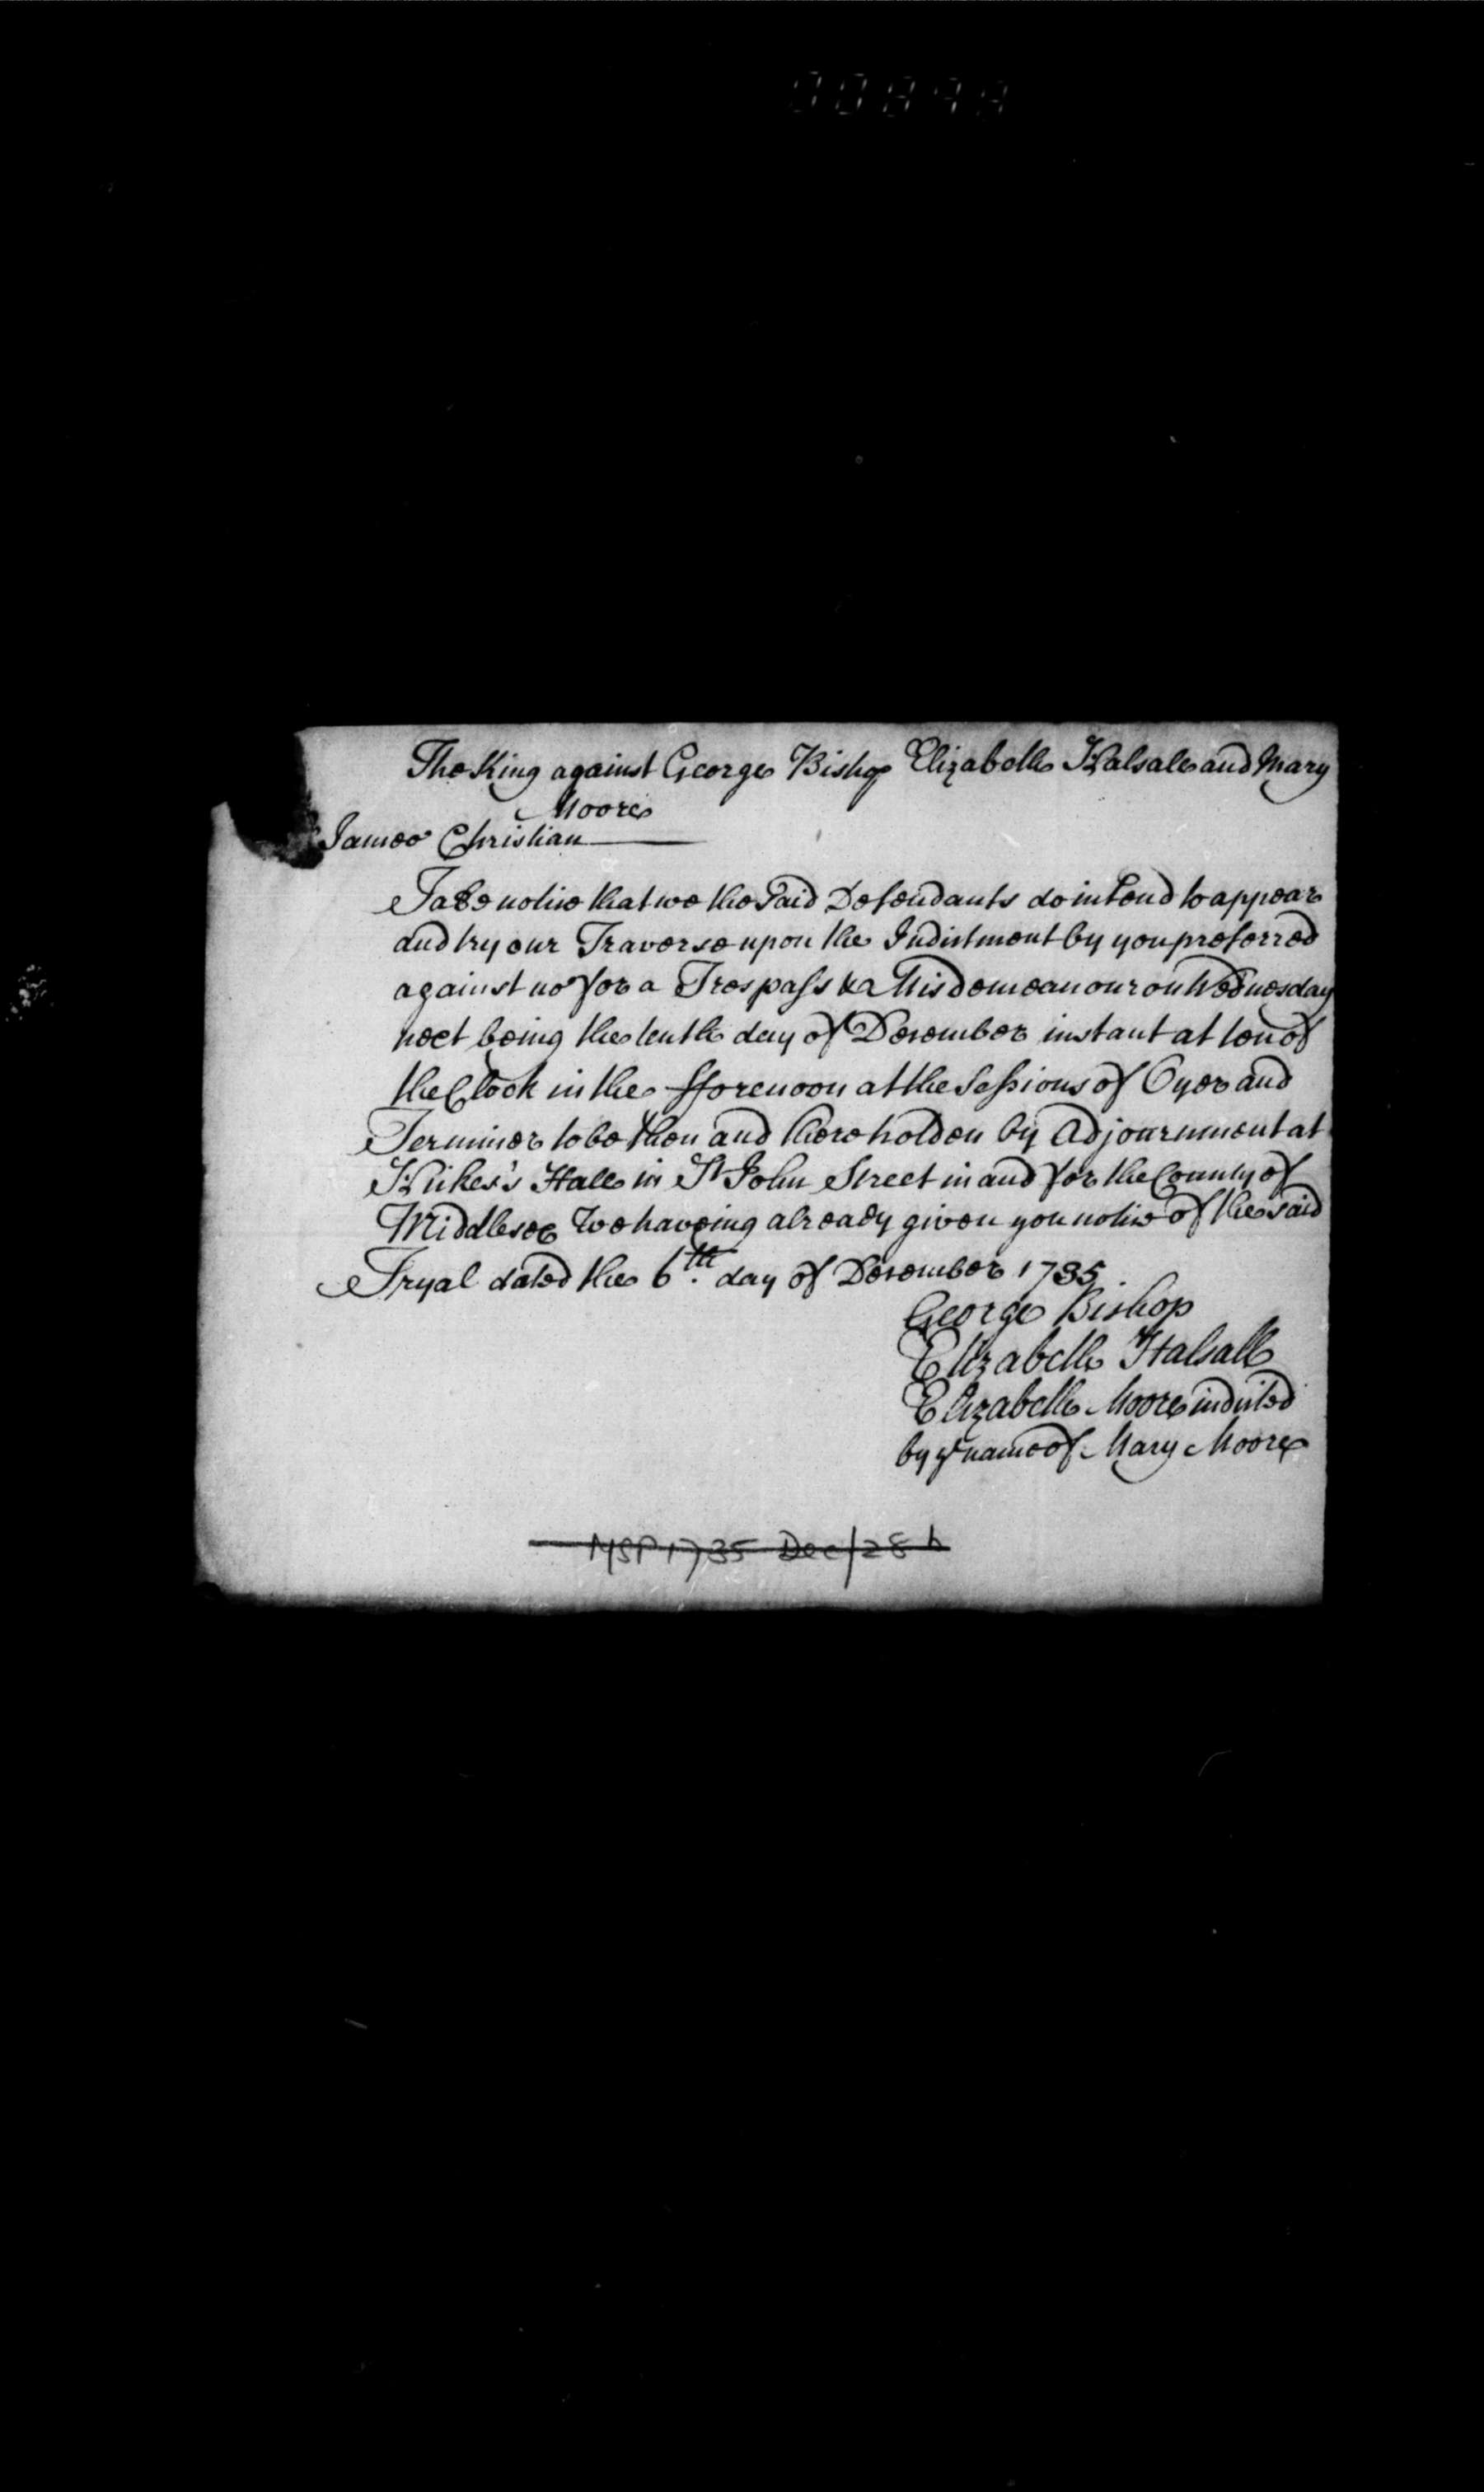 The King against George Bishop Elizabeth Halsall and Mary
Moore
James Christian
Take notice that we the Said Defendants do intend to appear
and try our Traverse upon the Indictment by you preferred
against us for a Trespass & a Misdemeanour on Wednesday
next being the tenth day of December instant at ten of
the Clock in the fforenoon at the Sessions of Oyer and
Terminer to be then and there holden by Adjournment at
Hickes's Hall in St John Street in and for the County of
Middlesex We haveing already given you notice of the said
Tryal dated the 6th. day of December 1735
George Bishop
Elizabeth Halsall
Elizabeth Moore indicted
by ye name of Mary Moore
MSP 1735 Dec/28 b